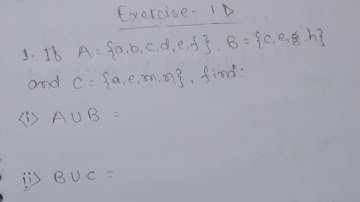 Exercise - 1D
1. If A = {a,b,c,d,e,f}, B = {c,e,g,h}
and C = {a,e,m,n}, find:
(i) A ∪ B =
(ii) B ∪ C =